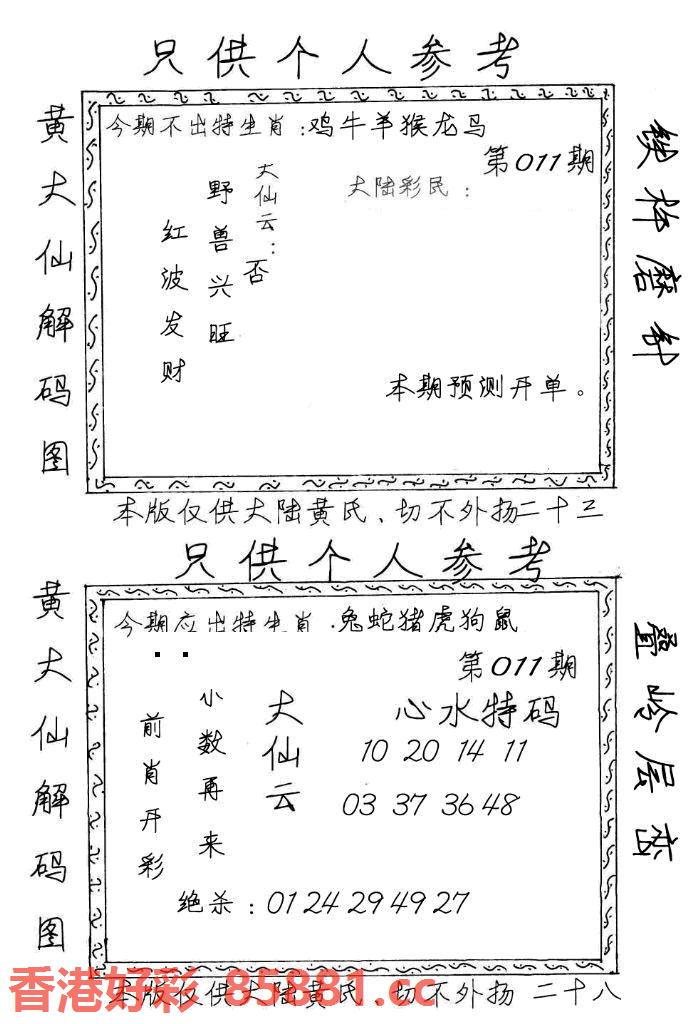 只供个人参考
黄大仙解码图
今期不出特生肖:鸡牛羊猴龙马
第011期
大仙云:否
野兽兴旺
红波发财
大陆彩民:
本期预测开单。
铁杵磨针
本版仅供大陆黄氏、切不外扬二十三
只供个人参考
黄大仙解码图
今期应出特生肖:兔蛇猪虎狗鼠
第011期
大仙云
小数再来
前肖开彩
心水特码
10 20 14 11
03 37 36 48
绝杀:01 24 29 49 27
叠岭层峦
本版仅供大陆黄氏、切不外扬 二十八
香港好彩 85881.cc